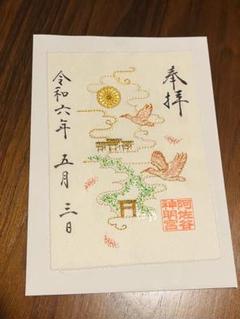 奉拝
令和六年 五月 三日
阿佐谷
神明宮